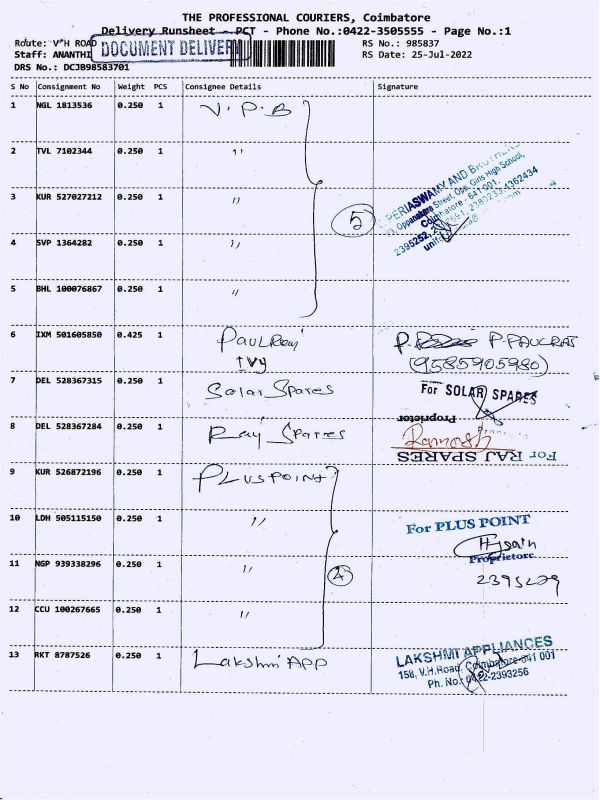 THE PROFESSIONAL COURIERS, Coimbatore
Delivery Runsheet - PCT - Phone No.:0422-3505555 - Page No.:1
Route: V H ROAD DOCUMENT DELIVERY RS No.: 985837
Staff: ANANTHI RS Date: 25-Jul-2022
DRS No.: DCJB98583701
S No Consignment No Weight PCS Consignee Details Signature
1 NGL 1813536 0.250 1 V.P.B
2 TVL 7102344 0.250 1 "
PERIASWAMY AND
Oppanakara Street, Opp. Girls High School,
3 KUR 527027212 0.250 1 " 5
Coimbatore - 641 001.
2395252,
4 SVP 1364282 0.250 1 "
5 BHL 100076867 0.250 1 "
6 IXM 501605850 0.425 1 Paulraj P. PAULRAJ
IVY (9585905980)
7 DEL 528367315 0.250 1 Solar Spares For SOLAR SPARES
Proprietor
8 DEL 528367284 0.250 1 Raj Spares Ramesh
For RAJ SPARES
9 KUR 526872196 0.250 1 PLUSPOINT
10 LDH 505115150 0.250 1 " For PLUS POINT
11 NGP 939338296 0.250 1 " 4 Proprietor
2395229
12 CCU 100267665 0.250 1 "
13 RKT 8787526 0.250 1 Lakshmi APP LAKSHMI APPLIANCES
158, V.H.Road, Coimbatore-641 001
Ph. No.: 0422-2393256